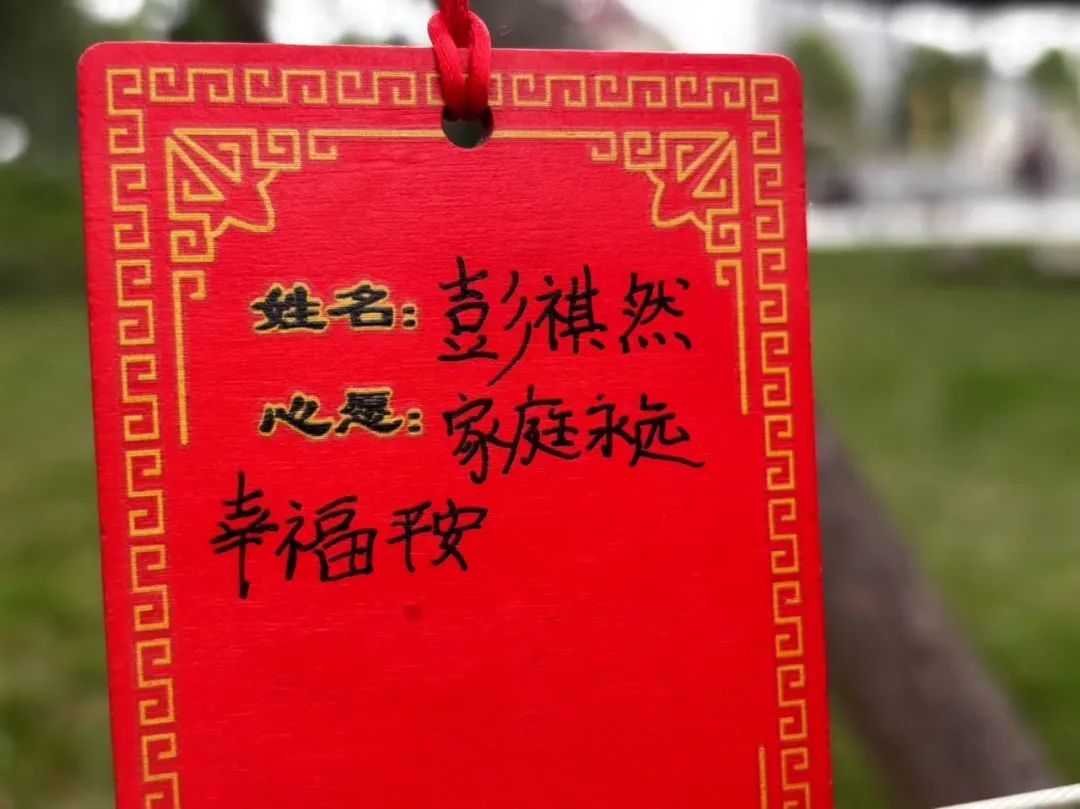 姓名:彭祺然
心愿:家庭永远
幸福平安